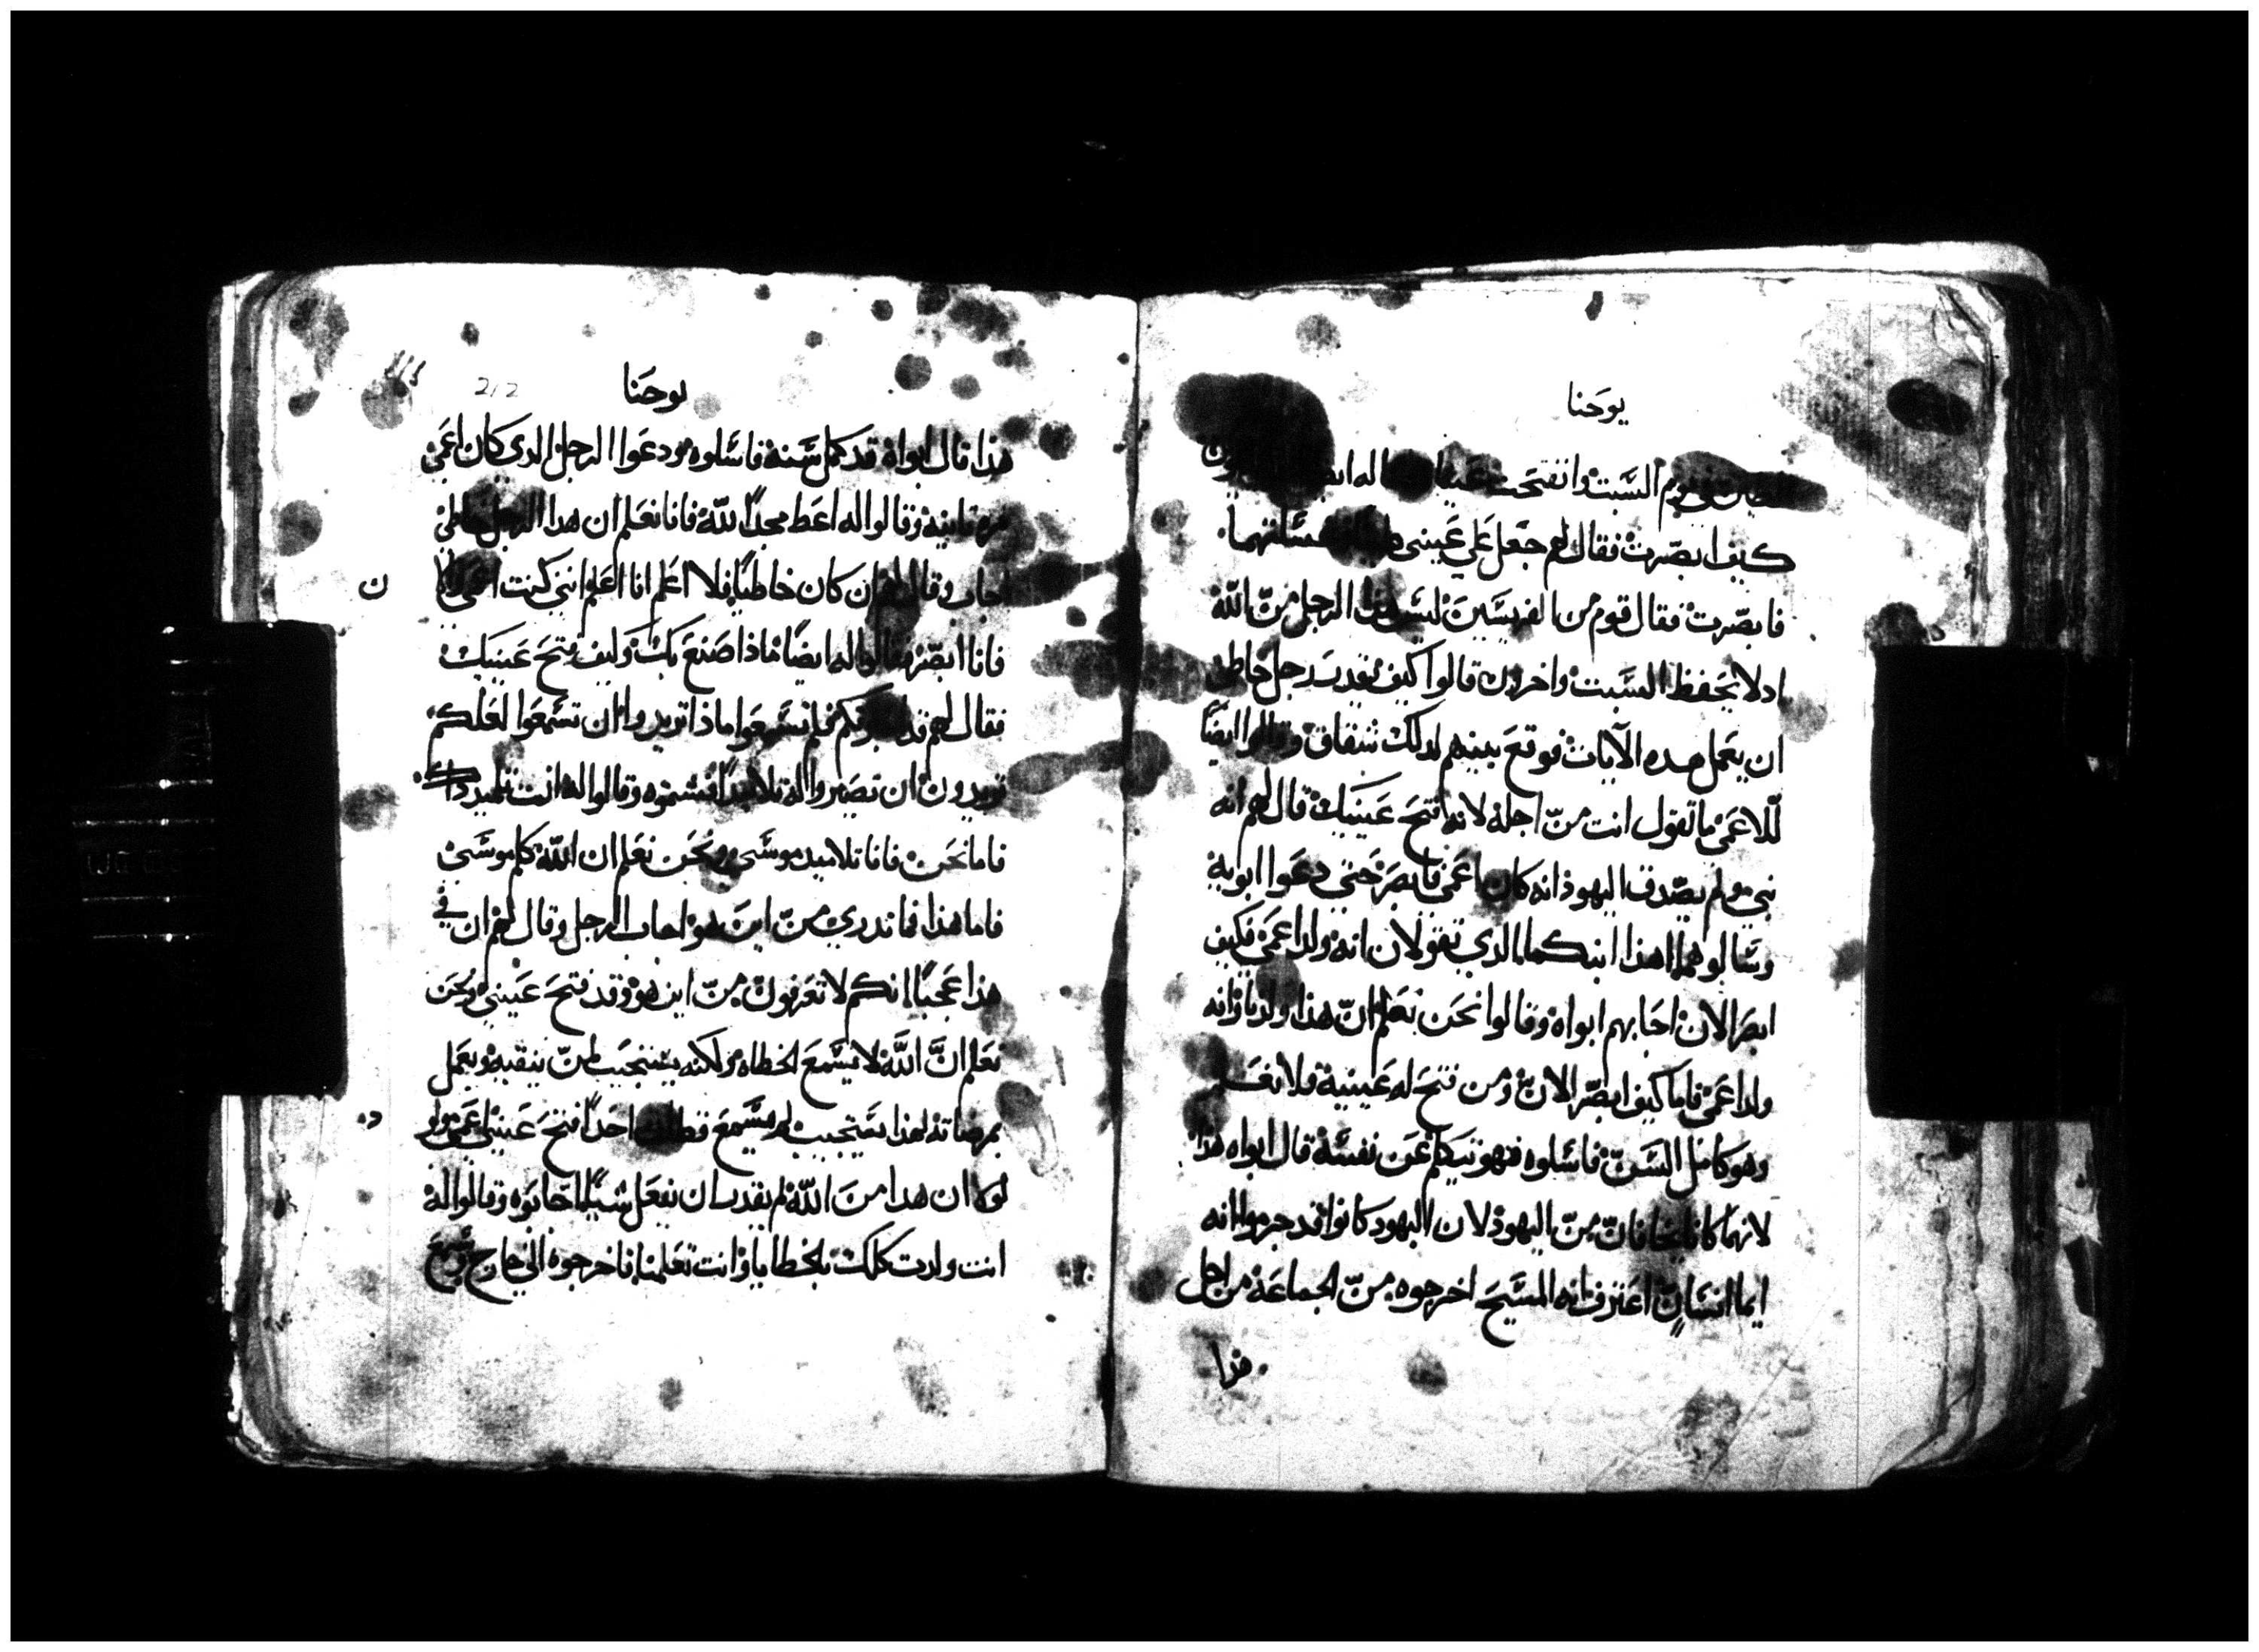 يوحنا
في يوم السبت وانفتحت
كيف ابصرت فقال لهم جعل علي عيني
فابصرت فقال قوم من الفريسين ليس هذا الرجل من الله
اد لا يحفظ السبت واخرون قالوا كيف يقدر رجل خاطي
ان يعمل هده الايات فوقع بينهم لدلك شقاق وقالوا ايضًا
للاعمي ما تقول انت من اجله لانه فتح عينيك قال لهم انه
نبي ولم يصدق اليهود انه كان اعمي فابصر حتي دعوا ابويه
وسالوهما اهدا ابنكما الذي تقولان انه ولد اعمي فكيف
ابصر الان اجابهم ابواه وقالوا نحن نعلم ان هذا ولدنا وانه
ولد اعمي فاما كيف ابصر الان ومن فتح له عينيه فلا نعلم
وهو كامل السن فاسلوه فهو يتكلم عن نفسه قال ابواه هذا
لانهما كانا يخافان من اليهود لان اليهود كانوا قد جزموا انه
ايما انسان اعترف انه المسيح اخرجوه من الجماعة من اجل
هذا
212
يوحنا
هذا قال ابواه قد كمل سنه فاسلوه ودعوا الرجل الدي كان اعمي
مره تانيه وقالوا له اعط مجدًا لله فانا نعلم ان هدا الرجل خاطي
اجاب وقال ان كان خاطيًا فلا اعلم انا اعلم انني كنت اعمي
ن
فانا ابصر فقالوا له ايضًا ماذا صنع بك وكيف فتح عينيك
فقال لهم قد فلم تسمعوا ماذا تريدوا ان تسمعوا لعلكم
تريدون ان تصيروا له تلاميدًا فشتموه وقالوا له انت تلميد داك
فاما نحن فانا تلاميد موسي ونحن نعلم ان الله كلم موسي
فاما هذا فما ندري من اين هو اجاب الرجل وقال لهم ان في
هذا عجبًا انكم لا تعرفون من اين هو وقد فتح عيني ونحن
نعلم ان الله لا يسمع الخطاه ولكنه يستجيب لمن يتقيه ويعمل
بمرضاته لهذا يستجيب لم يسمع قط ان احدًا فتح عيني اعمي ولد
لولا ان هدا من الله لم يقدر ان يفعل شيًا اجابوه وقالوا له
انت ولدت كلك بالخطايا وانت تعلمنا فاخرجوه الي خارج وسمع